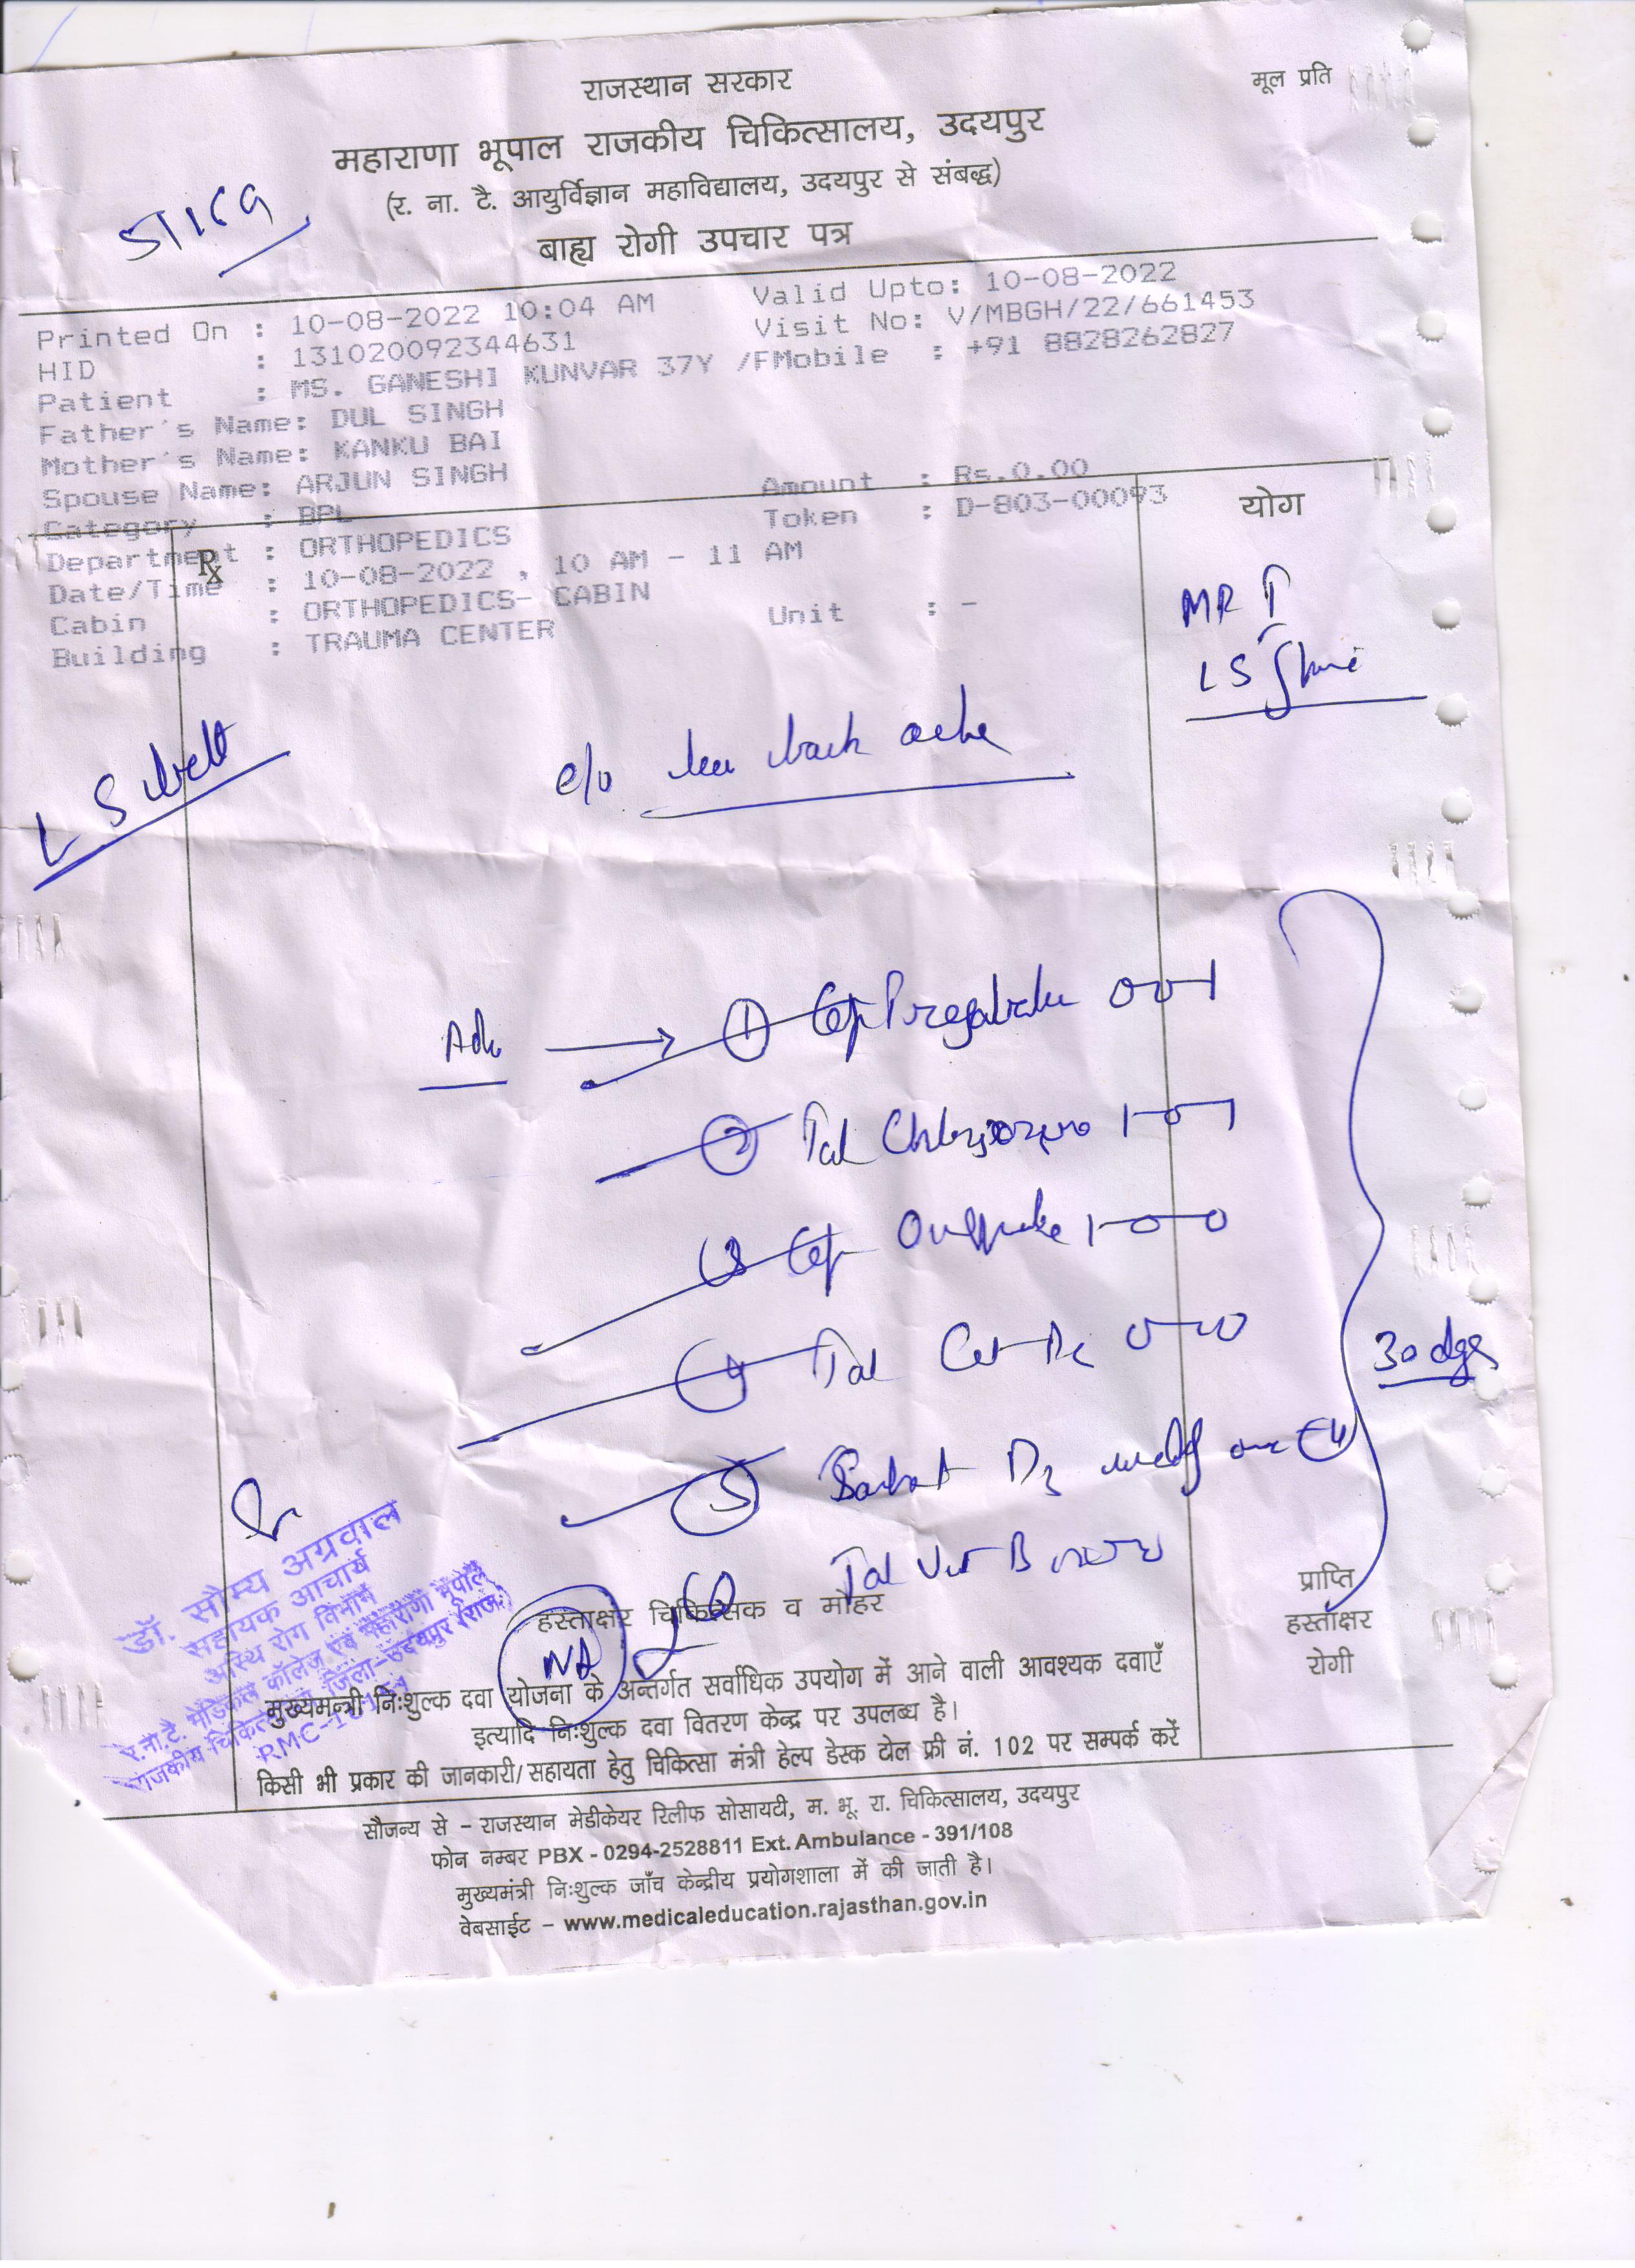 राजस्थान सरकार
मूल प्रति
महाराणा भूपाल राजकीय चिकित्सालय, उदयपुर
(र. ना. टै. आयुर्विज्ञान महाविद्यालय, उदयपुर से संबद्ध)
बाह्य रोगी उपचार पत्र
Printed On : 10-08-2022 10:04 AM Valid Upto: 10-08-2022
HID : 131020092344631 Visit No: V/MBGH/22/661453
Patient : MS. GANESHI KUNVAR 37Y /FMobile : +91 8828262827
Father's Name: DUL SINGH
Mother's Name: KANKU BAI
Spouse Name: ARJUN SINGH Amount : Rs.0.00
Category : BPL Token : D-803-00093
योग
Department : ORTHOPEDICS
Rx
Date/Time : 10-08-2022 , 10 AM - 11 AM
Cabin : ORTHOPEDICS- CABIN Unit : -
Building : TRAUMA CENTER
MRI
LS Spine
LS belt
c/o low back ache
Adv
1 Cap Pregabalin 0-0-1
2 Tab 1-0-1
3 Cap 1-0-0
4 Tab
5 D3
30 days
Tab Vit B
डॉ. सौम्य अग्रवाल
सहायक आचार्य
अस्थि रोग विभाग
र.ना.टै. मेडिकल कॉलेज एवं महाराणा भूपाल
राजकीय चिकित्सालय जिला-उदयपुर (राज.)
हस्ताक्षर चिकित्सक व मोहर
प्राप्ति
हस्ताक्षर
रोगी
NA
मुख्यमन्त्री निःशुल्क दवा योजना के अन्तर्गत सर्वाधिक उपयोग में आने वाली आवश्यक दवाएँ
इत्यादि निःशुल्क दवा वितरण केन्द्र पर उपलब्ध है।
किसी भी प्रकार की जानकारी/सहायता हेतु चिकित्सा मंत्री हेल्प डेस्क टोल फ्री नं. 102 पर सम्पर्क करें
सौजन्य से – राजस्थान मेडीकेयर रिलीफ सोसायटी, म. भू. रा. चिकित्सालय, उदयपुर
फोन नम्बर PBX - 0294-2528811 Ext. Ambulance - 391/108
मुख्यमंत्री निःशुल्क जाँच केन्द्रीय प्रयोगशाला में की जाती है।
वेबसाईट – www.medicaleducation.rajasthan.gov.in